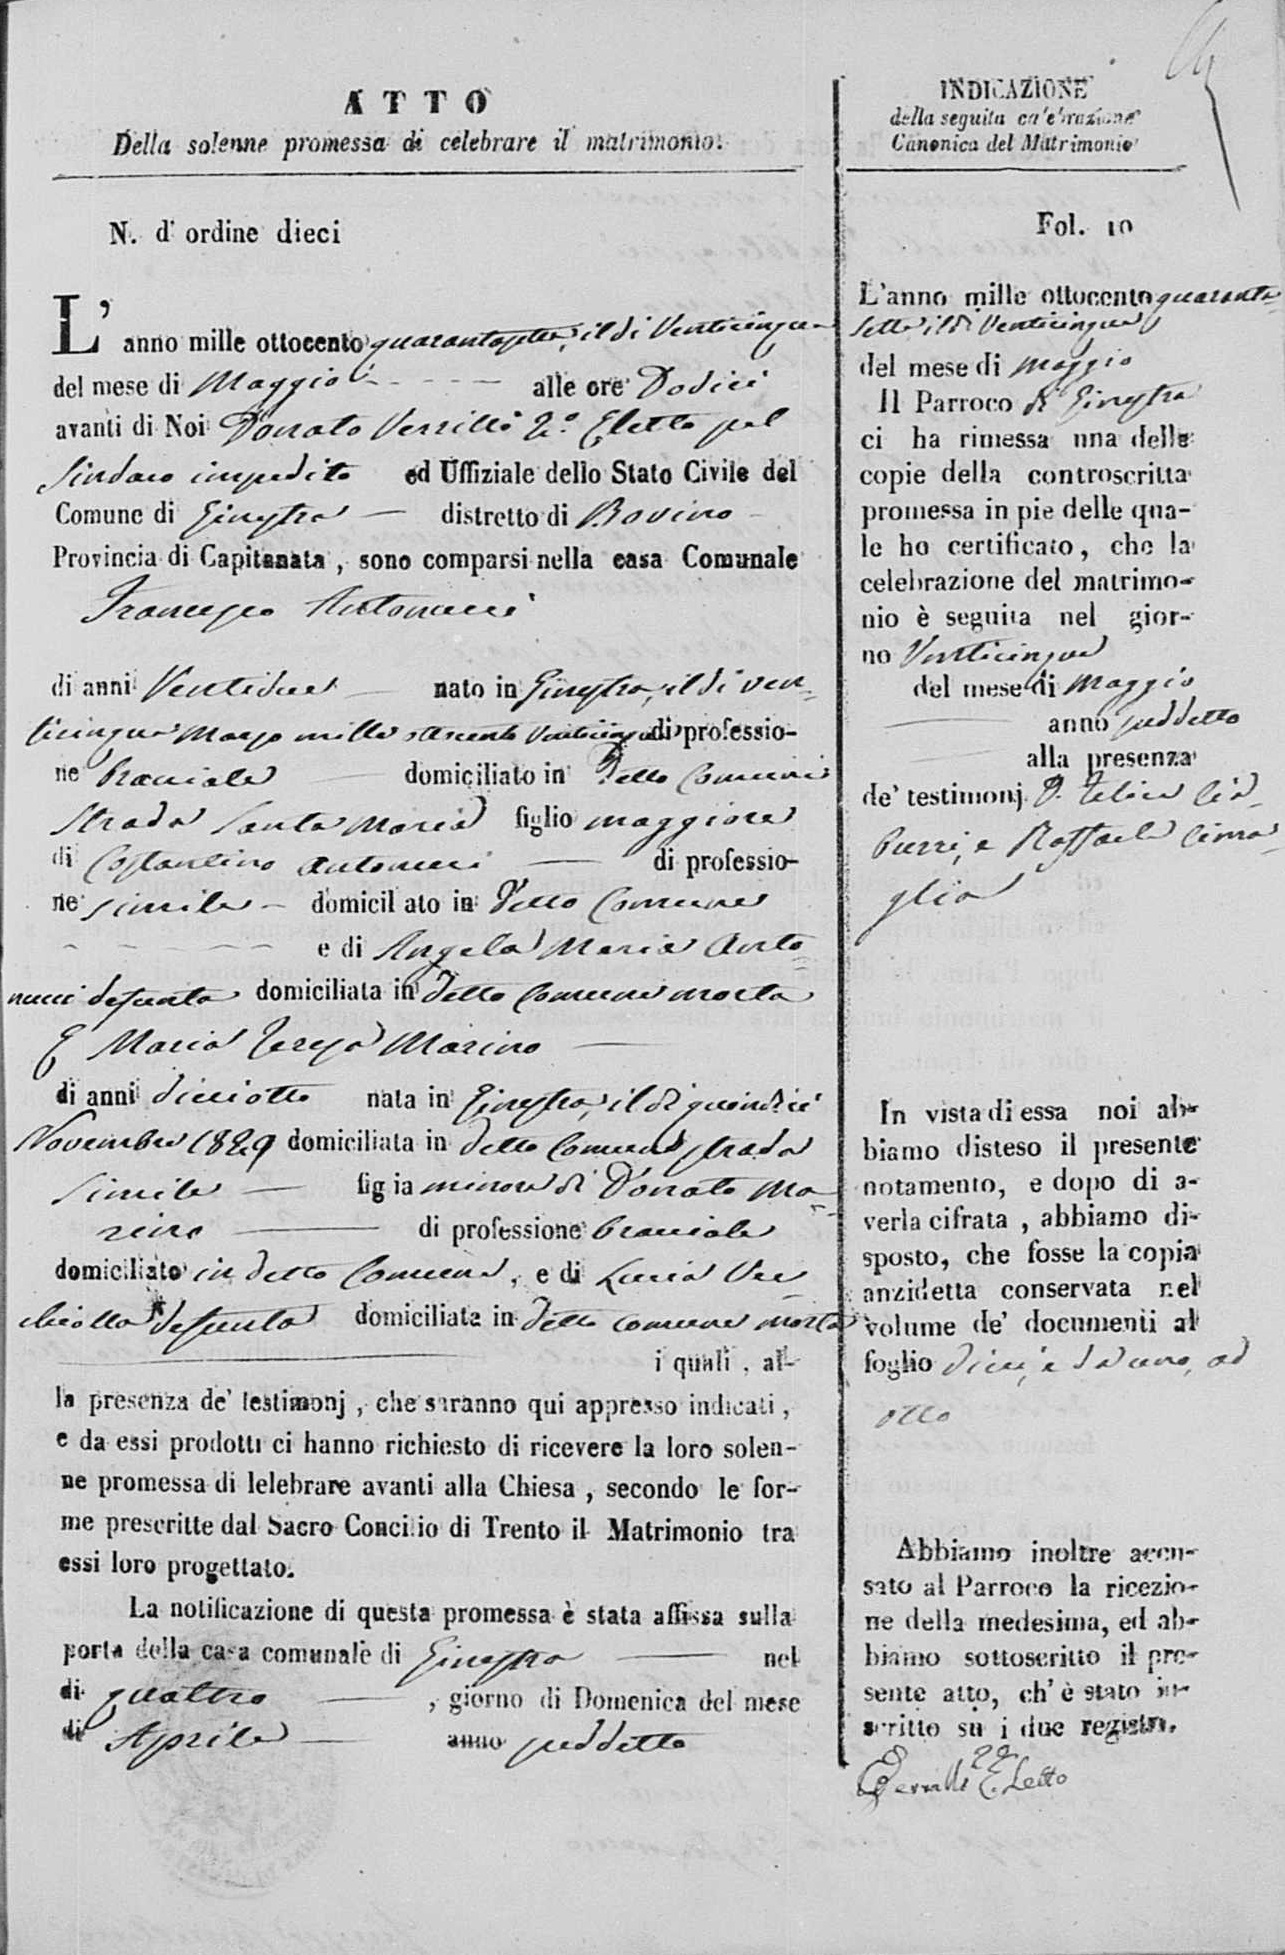 ATTO
Della solenne promessa di celebrare il matrimonio.
N. d' ordine dieci
L' anno mille ottocento quarantasette, il di Venticinque
del mese di Maggio alle ore Dodici
avanti di Noi Donato Verrilli 2.° Eletto pel
Sindaco impedito ed Uffiziale dello Stato Civile del
Comune di Ginestra distretto di Bovino
Provincia di Capitanata, sono comparsi nella casa Comunale
Francesco Antonucci
di anni Ventidue nato in Ginestra, il di ven=
ticinque Marzo mille ottocento Venticinque di professio-
ne Bracciale domiciliato in Detto Comune
Strada Santa Maria figlio maggiore
di Costantino Antonucci di professio-
ne simile domicil ato in Detto Comune
e di Angela Maria Anto=
nucci defunta domiciliata in detto Comune morta
E Maria Teresa Marino
di anni diciotto nata in Ginestra, il di quindici
Novembre 1829 domiciliata in detto Comune strada
Simile fig ia minore di Donato Ma=
rino di professione Bracciale
domiciliato in detto Comune, e di Lucia Vec=
chiolla defunta domiciliata in detto comune morta
i quali, al-
la presenza de' testimonj, che saranno qui appresso indicati,
e da essi prodotti ci hanno richiesto di ricevere la loro solen-
ne promessa di lelebrare avanti alla Chiesa, secondo le for-
me prescritte dal Sacro Concilio di Trento il Matrimonio tra
essi loro progettato.
La notificazione di questa promessa è stata affissa sulla
porta della casa comunale di Ginestra nel
di quattro, giorno di Domenica del mese
di Aprile anno suddetto
INDICAZIONE
della seguita celebrazione
Canonica del Matrimonio
Fol. 10
L'anno mille ottocento quaranta=
sette il di Venticinque
del mese di Maggio
Il Parroco di Ginestra
ci ha rimessa una delle
copie della controscritta
promessa in pie delle qua-
le ha certificato, che la
celebrazione del matrimo-
nio è seguita nel gior-
no Venticinque
del mese di Maggio
anno suddetto
alla presenza
de' testimonj D. Felice
e Raffaele Cima=
glia
In vista di essa noi ab-
biamo disteso il presente
notamento, e dopo di a-
verla cifrata, abbiamo di-
sposto, che fosse la copia
anzidetta conservata nel
volume de' documenti al
foglio dieci, e da uno, ad
otto
Abbiamo inoltre accu-
sato al Parroco la ricezio-
ne della medesima, ed ab-
biamo sottoscritto il pre-
sente atto, ch' è stato in-
scritto su i due registri.
Verrilli 2° Eletto